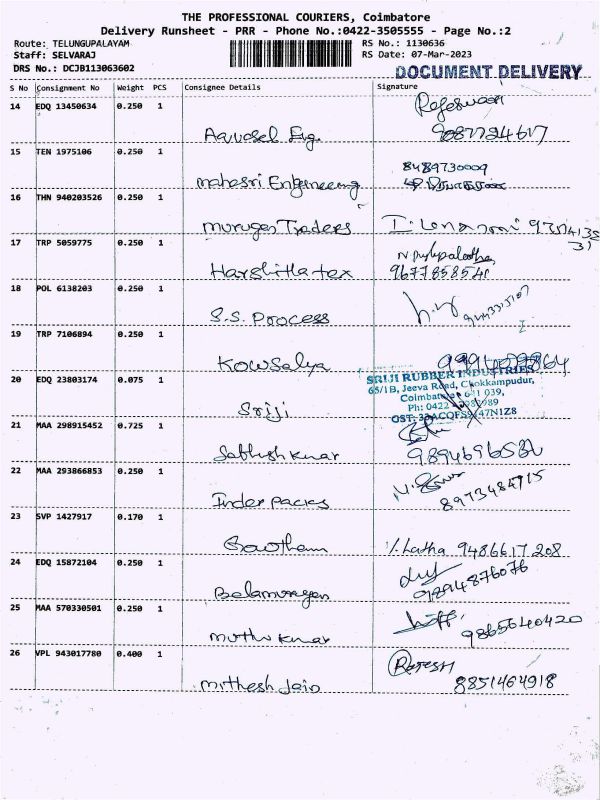 THE PROFESSIONAL COURIERS, Coimbatore
Delivery Runsheet - PRR - Phone No.:0422-3505555 - Page No.:2
Route: TELUNGUPALAYAM
RS No.: 1130636
Staff: SELVARAJ
RS Date: 07-Mar-2023
DRS No.: DCJB113063602
DOCUMENT DELIVERY
S No Consignment No Weight PCS Consignee Details Signature
14 EDQ 13450634 0.250 1
15 TEN 1975106 0.250 1
8489730009
Mahesri Engineering
16 THN 940203526 0.250 1
Muruges Traders
17 TRP 5059775 0.250 1
Harshitha tex 9677858540
18 POL 6138203 0.250 1
S.S. Process
19 TRP 7106894 0.250 1
Kowsalya
20 EDQ 23803174 0.075 1
SRIJI RUBBER INDUSTRIES
65/1B, Jeeva Road, Chokkampudur,
Coimbatore 641 039,
Sriji
21 MAA 298915452 0.725 1
Sathish Kumar
22 MAA 293866853 0.250 1
Inder packs
23 SVP 1427917 0.170 1
Gowtham Latha 9486617208
24 EDQ 15872104 0.250 1
Balamurugan 9894876076
25 MAA 570330501 0.250 1
Muthu Kumar 9865640420
26 VPL 943017780 0.400 1
Mithesh Jain 8851464918